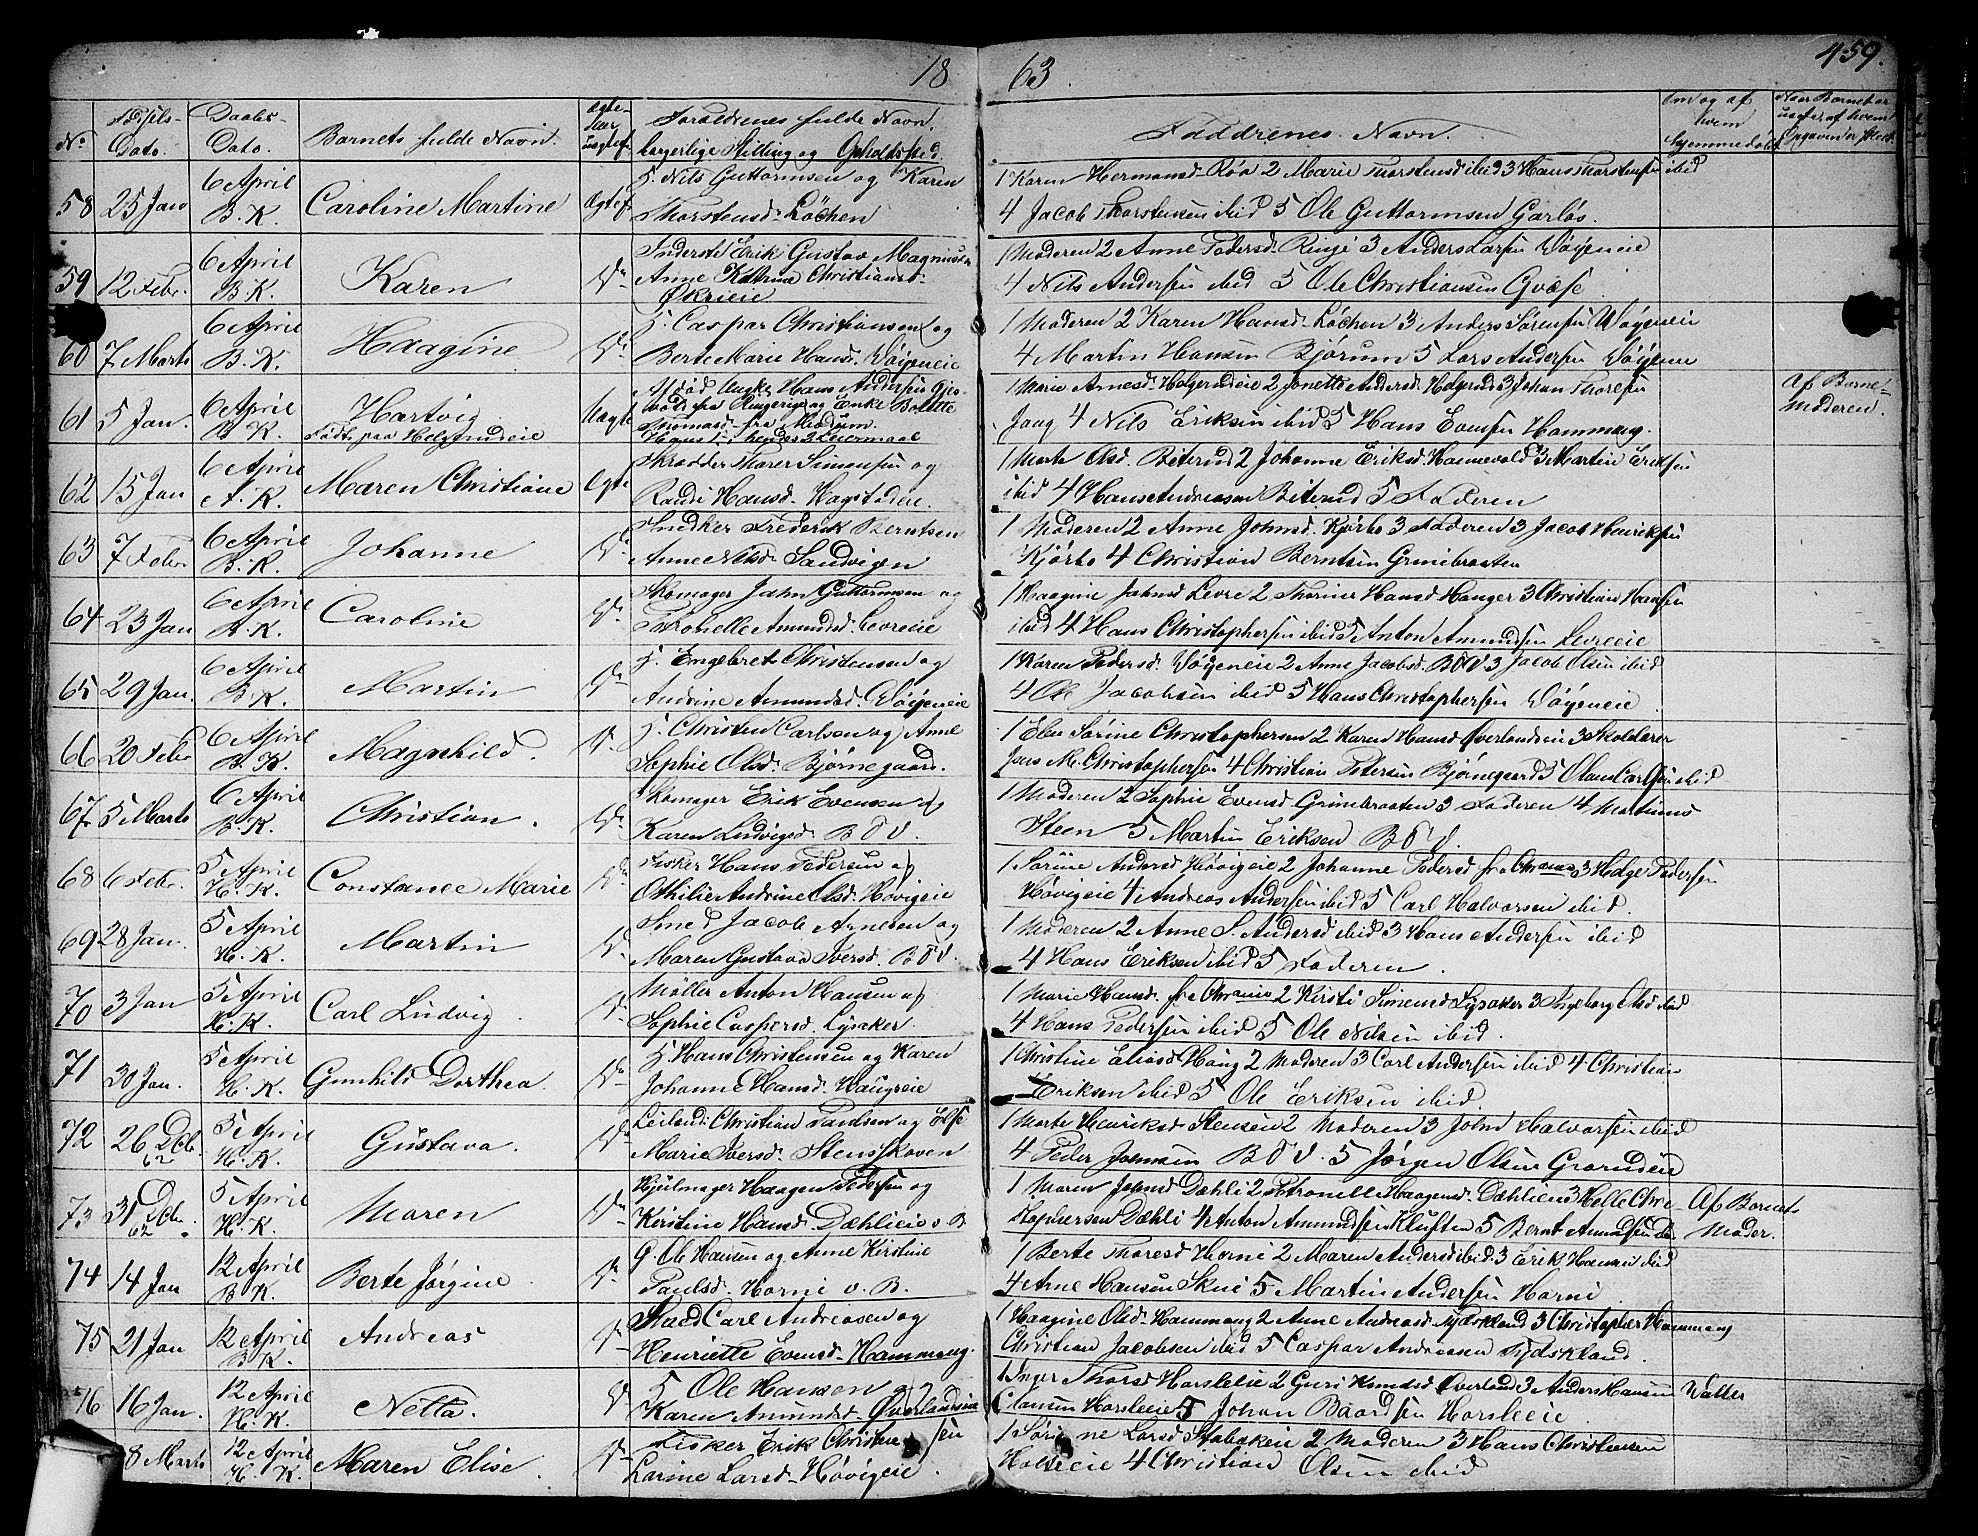 18 63. 459.
No Fødsels-Dato. Daabs-Dato. Barnets fulde Navn. Ægte- eller uægtef. Forældrenes fulde Navn, borgerlige Stilling og Opholdssted. Faddrenes Navn. Om og af hvem hjemmedøbt Naar Barnet er uægte, af hvem Opgaven er skeet.
58 25 Jan 6 April B. K. Caroline Martine Ægtef. F. Nils Guttormsen og Karen
Thorstensd. Løchen
1 Karen Hermansd. Røa 2 Marie Thorstensd ibid 3 Hans Thorstensen ibid
4 Jacob Thorstensen ibid 5 Ole Guttormsen Garløs.
59 12 Febr. 6 April B. K. Karen Do Inderst Erik Gustav Magnusen
Anne Katrina Christiansd.
Økrieie
1 Moderen 2 Anne Pedersd. Ringi 3 Anders Larsen Vøyeneie
4 Nils Andersen ibid 5 Ole Christiansen Gvæse
60 7 Marts 6 April B. K. Haagine Do F. Caspar Christiansen og
Berte Marie Hansd. Vøyeneie
1 Moderen 2 Karen Hansd. Løchen 3 Anders Sørensen Vøyeneie
4 Martin Hansen Bjørum 5 Lars Andersen Vøyene
61 5 Jan. 6 April B. K. Hartvig
Født paa Helgerudeie Uægte Afdød Enke Hans Andersen
fra Ringerige og Enke Bolette
Thomasd. fra Modum.
Hans 1. hendes 2 Leiermaal
1 Marie Arnesd. Helgerudeie 2 Jonette Andersd. Helgerud 3 Johan Thoresen
Jong 4 Nils Eriksen ibid 5 Hans Evensen Hammang.
Af Barnemoderen.
62 15 Jan 6 April A. K. Maren Christiane Ægte Skrædder Thorer Simonsen og
Randi Hansd. Hagstadeie.
1 Marte Olsd. Beterud 2 Johanne Eriksd. Hannevold 3 Martin Eriksen
ibid 4 Hans Andreasen Beterud 5 Faderen
63 7 Febr 6 April B. K. Johanne Do Snedker Frederik Berntsen
Anne Nilsd. Sandvigen
1 Moderen 2 Anne Johnsd. Kjørbo 3 Faderen 3 Jacob Henriksen
Kjørbo 4 Christian Berntsen Grinibraaten
64 23 Jan 6 April A. K. Caroline Do Skomager John Guttormsen og
Petronelle Amundsd. Levreie
1 Haagine Johnsd Levre 2 Thorine Hansd Hauger 3 Christian Hansen
ibid 4 Hans Christophersen ibid 5 Anton Amundsen Levreeie
65 29 Jan. 6 April B. K. Martin Do F. Engebret Christensen og
Andrine Amundsd. Vøyeneie
1 Karen Pedersd. Vøyeneie 2 Anne Jacobsd. B S V 3 Jacob Olsen ibid
4 Ole Jacobsen ibid 5 Hans Christophersen Vøyeneie
66 20 Febr 6 April B. K. Magnhild. Do F. Christen Carlsen og Anne
Sophie Olsd. Bjørnegaard.
1 Elen Sørine Christophersen 2 Karen Hansd Øverlandeie 3 Skolelærer
Jens M. Christophersen 4 Christian Petersen Bjørnegaard 5 Olaus Carlsen ibid
67 5 Marts 6 April B. K. Christian. Do Skomager Erik Evensen og
Karen Ludvigsd. B S V.
1 Moderen 2 Sophie Evensd Grinibraaten 3 Faderen 4 Martinus
Steen 5 Martin Eriksen B S V.
68 6 Febr. 5 April H. K. Constance Marie Do Fisker Hans Pedersen og
Othilie Andrine Olsd. Høvigeie
1 Sørine Andersd Høvigeie 2 Johanne Pedersd fra Chrania 3 Helge Pedersen
Høvigeie 4 Andreas Andersen ibid 5 Carl Halvorsen ibid.
69 28 Jan. 5 April H. K. Martin Do Smed Jacob Arnesen og
Maren Gustava Iversd. B S V.
1 Moderen 2 Anne S. Andersd ibid 3 Hans Andersen ibid
4 Hans Eriksen ibid 5 Faderen.
70 3 Jan 5 April H. K. Carl Ludvig. Do Møller Anton Hansen og
Sophie Caspersd. Lysaker.
1 Marie Hansd. fra Chrania 2 Kirsti Simensd Lysaker 3 Ingeborg Olsd ibid
4 Hans Pedersen ibid 5 Ole Nilsen ibid.
71 30 Jan. 5 April H. K. Gunhild Dorthea. Do F. Hans Christensen og Karen
Johanne Hansd. Haugseie
1 Christine Eliasd Haug 2 Moderen 3 Carl Andersen ibid 4 Christian
Eriksen ibid 5 Ole Eriksen ibid.
72 26 Dcb. 62 5 April H. K. Gustava. Do Leilend. Christian Paulsen og Else
Marie Iversd. Stensskoven
1 Marte Henriksd Stensen 2 Moderen 3 John Halvorsen ibid
4 Peder Joensen B S V. 5 Jørgen Olsen Grorudeie
73 31 Dcb. 62 5 April H. K. Maren Do Hjulmager Haagen Pedersen og
Kirstine Hansd. Dæhlieie v. B
1 Maren Johnsd Dæhli 2 Petronelle Haagensd. Dæhlieie 3 Helle Chri-
stophersen Dæhli 4 Anton Amundsen Kluften 5 Bernt Amundsen Do
Af Barnets Moder.
74 14 Jan 12 April B K. Berte Jørgine. Do G. Ole Hansen og Anne Kirstine
Paulsd. Horni v. B.
1 Berte Thoresd Horni 2 Maren Andersd ibid. 3 Erik Hansen ibid
4 Arne Hansen Skui 5 Martin Andersen Horni
75 21 Jan 12 April B K. Andreas Do Carl Andreasen og
Henriette Evensd. Hammang.
1 Haagine Olsd. Hammang 2 Anne Andreasd Tydskland 3 Christopher Hammang
Christian Jacobsen ibid 5 Caspar Andreasen Tydskland.
76 16 Jan. 12 April H. K. Netta. Do F. Ole Hansen og
Karen Amundsd Øverlandeie
1 Inger Thorsd Horsleeie 2 Guri Knudsd Øverland 3 Anders Hansen
Clausen Horsleeie 5 Johan Baardsen Horsleeie.
8 Marts 12 April H. K. Maren Elise. Do Fisker Erik Christensen
Larine Larsd. Høvigeie.
1 Sørine Larsd Stabækeie 2 Moderen 3 Hans Christensen
Holteeie 4 Christian Olsen ibid